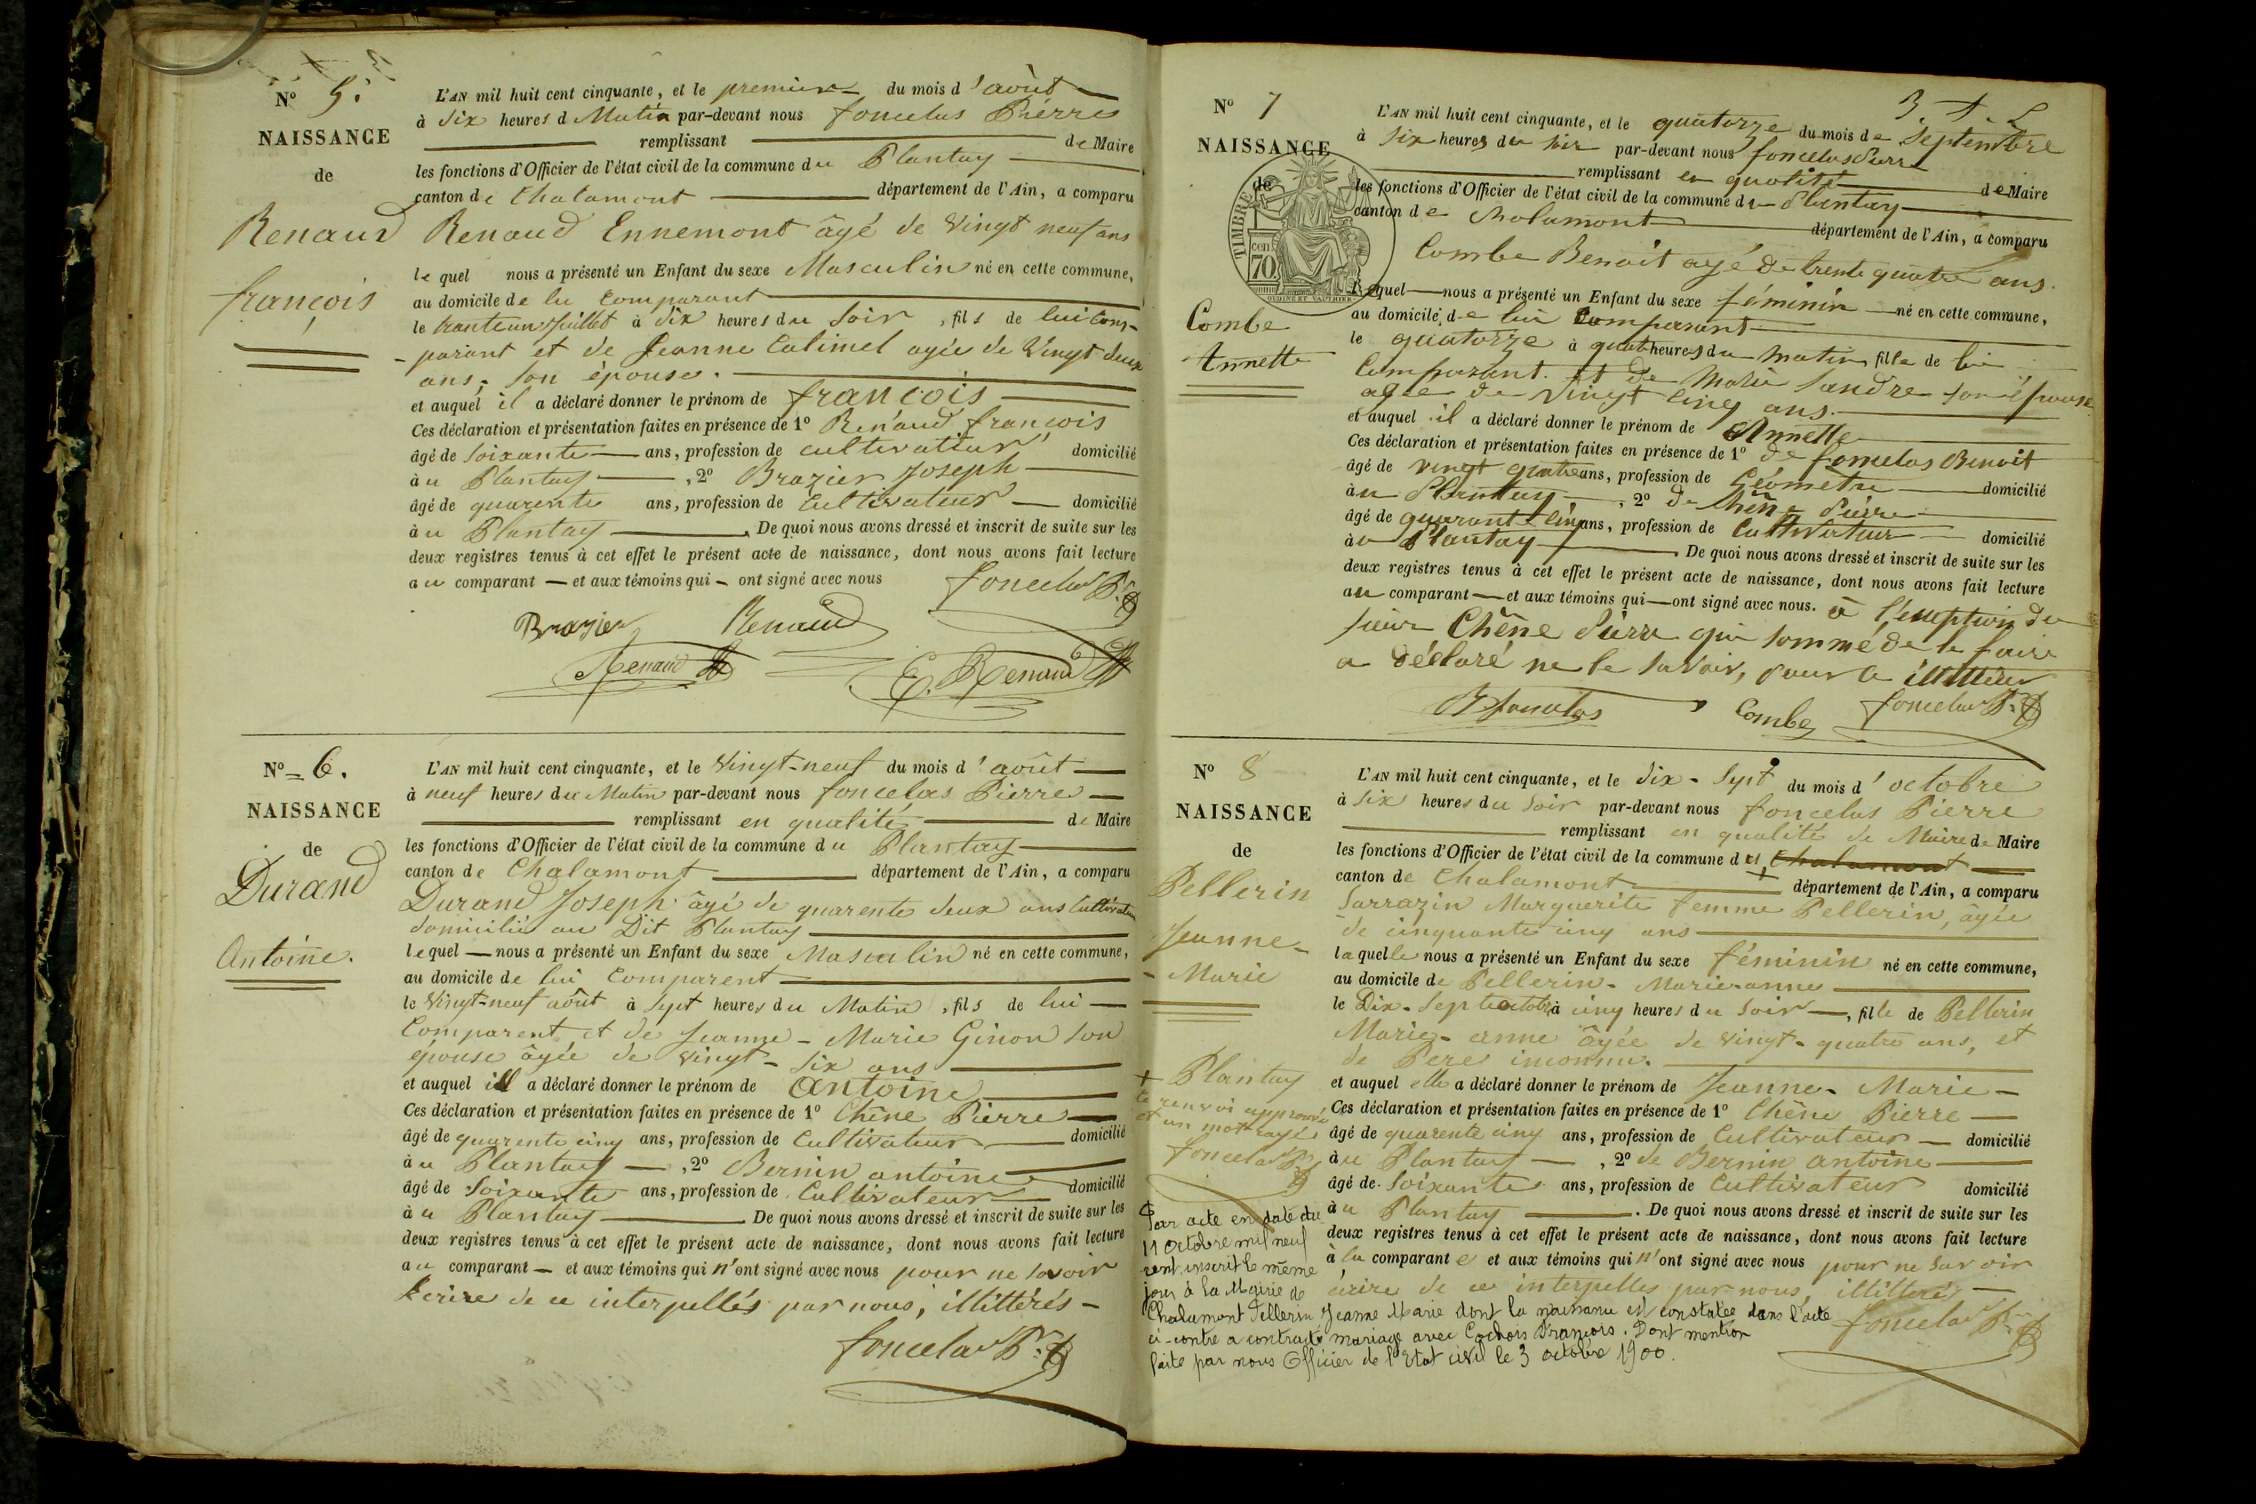 N° 5.
NAISSANCE
de
Renaud
françois
L'AN mil huit cent cinquante, et le premier du mois d'août
à six heures d Matin par-devant nous foncelas Pierre
remplissant de Maire
les fonctions d'Officier de l'état civil de la commune du Plantay
canton de Chalamont département de l'Ain, a comparu
Renaud Ennemont âgé de vingt neuf ans
le quel nous a présenté un Enfant du sexe Masculin né en cette commune,
au domicile de lui comparant
le trente un Juillet à dix heures du soir, fils de lui com-
-parant et de Jeanne Catimel agée de vingt deux
ans, son épouse.
et auquel il a déclaré donner le prénom de françois
Ces déclaration et présentation faites en présence de 1° Renaud françois
âgé de soixante ans, profession de cultivateur domicilié
à u Plantay, 2° Brazier Joseph
âgé de quarente ans, profession de cultivateur domicilié
à u Plantay. De quoi nous avons dressé et inscrit de suite sur les
deux registres tenus à cet effet le présent acte de naissance, dont nous avons fait lecture
au comparant et aux témoins qui ont signé avec nous foncelas P.
Brazier Renaud
Renaud E. Renaud
N° 6.
NAISSANCE
de
Durand
Antoine.
L'AN mil huit cent cinquante, et le vingt-neuf du mois d'août
à neuf heures du Matin par-devant nous foncelas Pierre
remplissant en qualité de Maire
les fonctions d'Officier de l'état civil de la commune du Plantay
canton de Chalamont département de l'Ain, a comparu
Durand Joseph âgé de quarente deux ans Cultivateur
domicilié au Dit Plantay
lequel nous a présenté un Enfant du sexe Masculin né en cette commune,
au domicile de lui comparent
le vingt-neuf août à sept heures du Matin, fils de lui
Comparent et de Jeanne-Marie Ginon son
épouse âgée de vingt-six ans
et auquel il a déclaré donner le prénom de antoine
Ces déclaration et présentation faites en présence de 1° Chêne Pierre
âgé de quarente cinq ans, profession de Cultivateur domicilié
à u Plantay, 2° Bernin antoine
âgé de soixante ans, profession de Cultivateur domicilié
à u Plantay. De quoi nous avons dressé et inscrit de suite sur les
deux registres tenus à cet effet le présent acte de naissance, dont nous avons fait lecture
au comparant et aux témoins qui n'ont signé avec nous pour ne savoir
écrire de ce interpellés par nous, illittérés
foncelas P.
3
N° 7
NAISSANCE
de
TIMBRE
cen 70
Combe
Annette
L'AN mil huit cent cinquante, et le quatorze du mois de Septembre
à six heures du soir par-devant nous foncelas Pierre
remplissant en qualité de Maire
les fonctions d'Officier de l'état civil de la commune du Plantay
canton de Chalamont département de l'Ain, a comparu
Combe Benoit agé de trente quatre ans.
lequel nous a présenté un Enfant du sexe féminin né en cette commune,
au domicile de lui comparant
le quatorze à quat heures du matin, fille de lui
Comparant et de Marie Sandre son épouse
agée de vingt cinq ans.
et auquel il a déclaré donner le prénom de Annette
Ces déclaration et présentation faites en présence de 1° de foncelas Benoit
âgé de vingt quatre ans, profession de Géomètre domicilié
à u Plantay, 2° de Chêne Pierre
âgé de quarante cinq ans, profession de Cultivateur domicilié
à u Plantay. De quoi nous avons dressé et inscrit de suite sur les
deux registres tenus à cet effet le présent acte de naissance, dont nous avons fait lecture
au comparant et aux témoins qui ont signé avec nous. à l'exception du
sieur Chêne Pierre qui sommé de le faire
a déclaré ne le savoir, pour
B. foncelas Combe foncelas P.
N° 8
NAISSANCE
de
Pellerin
Jeanne-
-Marie
L'AN mil huit cent cinquante, et le dix-sept du mois d'octobre
à six heures du soir par-devant nous foncelas Pierre
remplissant en qualité de Maire de Maire
les fonctions d'Officier de l'état civil de la commune du + Chalamont
canton de Chalamont département de l'Ain, a comparu
Sarrazin Marguerite femme Pellerin, âgée
de cinquante cinq ans
laquelle nous a présenté un Enfant du sexe féminin né en cette commune,
au domicile de Pellerin-Marie-anne
le Dix-sept octobre à cinq heures du soir, fille de Pellerin
Marie-anne âgée de vingt-quatre ans, et
de Pere inconnu.
et auquel elle a déclaré donner le prénom de Jeanne-Marie
Ces déclaration et présentation faites en présence de 1° Chêne Pierre
âgé de quarente cinq ans, profession de Cultivateur domicilié
à u Plantay, 2° de Bernin antoine
âgé de soixante ans, profession de Cultivateur domicilié
à u Plantay. De quoi nous avons dressé et inscrit de suite sur les
deux registres tenus à cet effet le présent acte de naissance, dont nous avons fait lecture
à la comparant e et aux témoins qui n'ont signé avec nous pour ne savoir
écrire de ce interpellés par nous, illittérés
foncelas P.
+ Plantay
le renvoi approuvé
et un mot rayé
foncelas P.
Par acte en date du
11 Octobre mil neuf
cent inscrit le même
jour à la Mairie de
Chalamont Pellerin Jeanne Marie dont la naissance est constatée dans l'acte
ci-contre a contracté mariage avec Cochois François. Dont mention
faite par nous Officier de l'Etat civil le 3 octobre 1900.